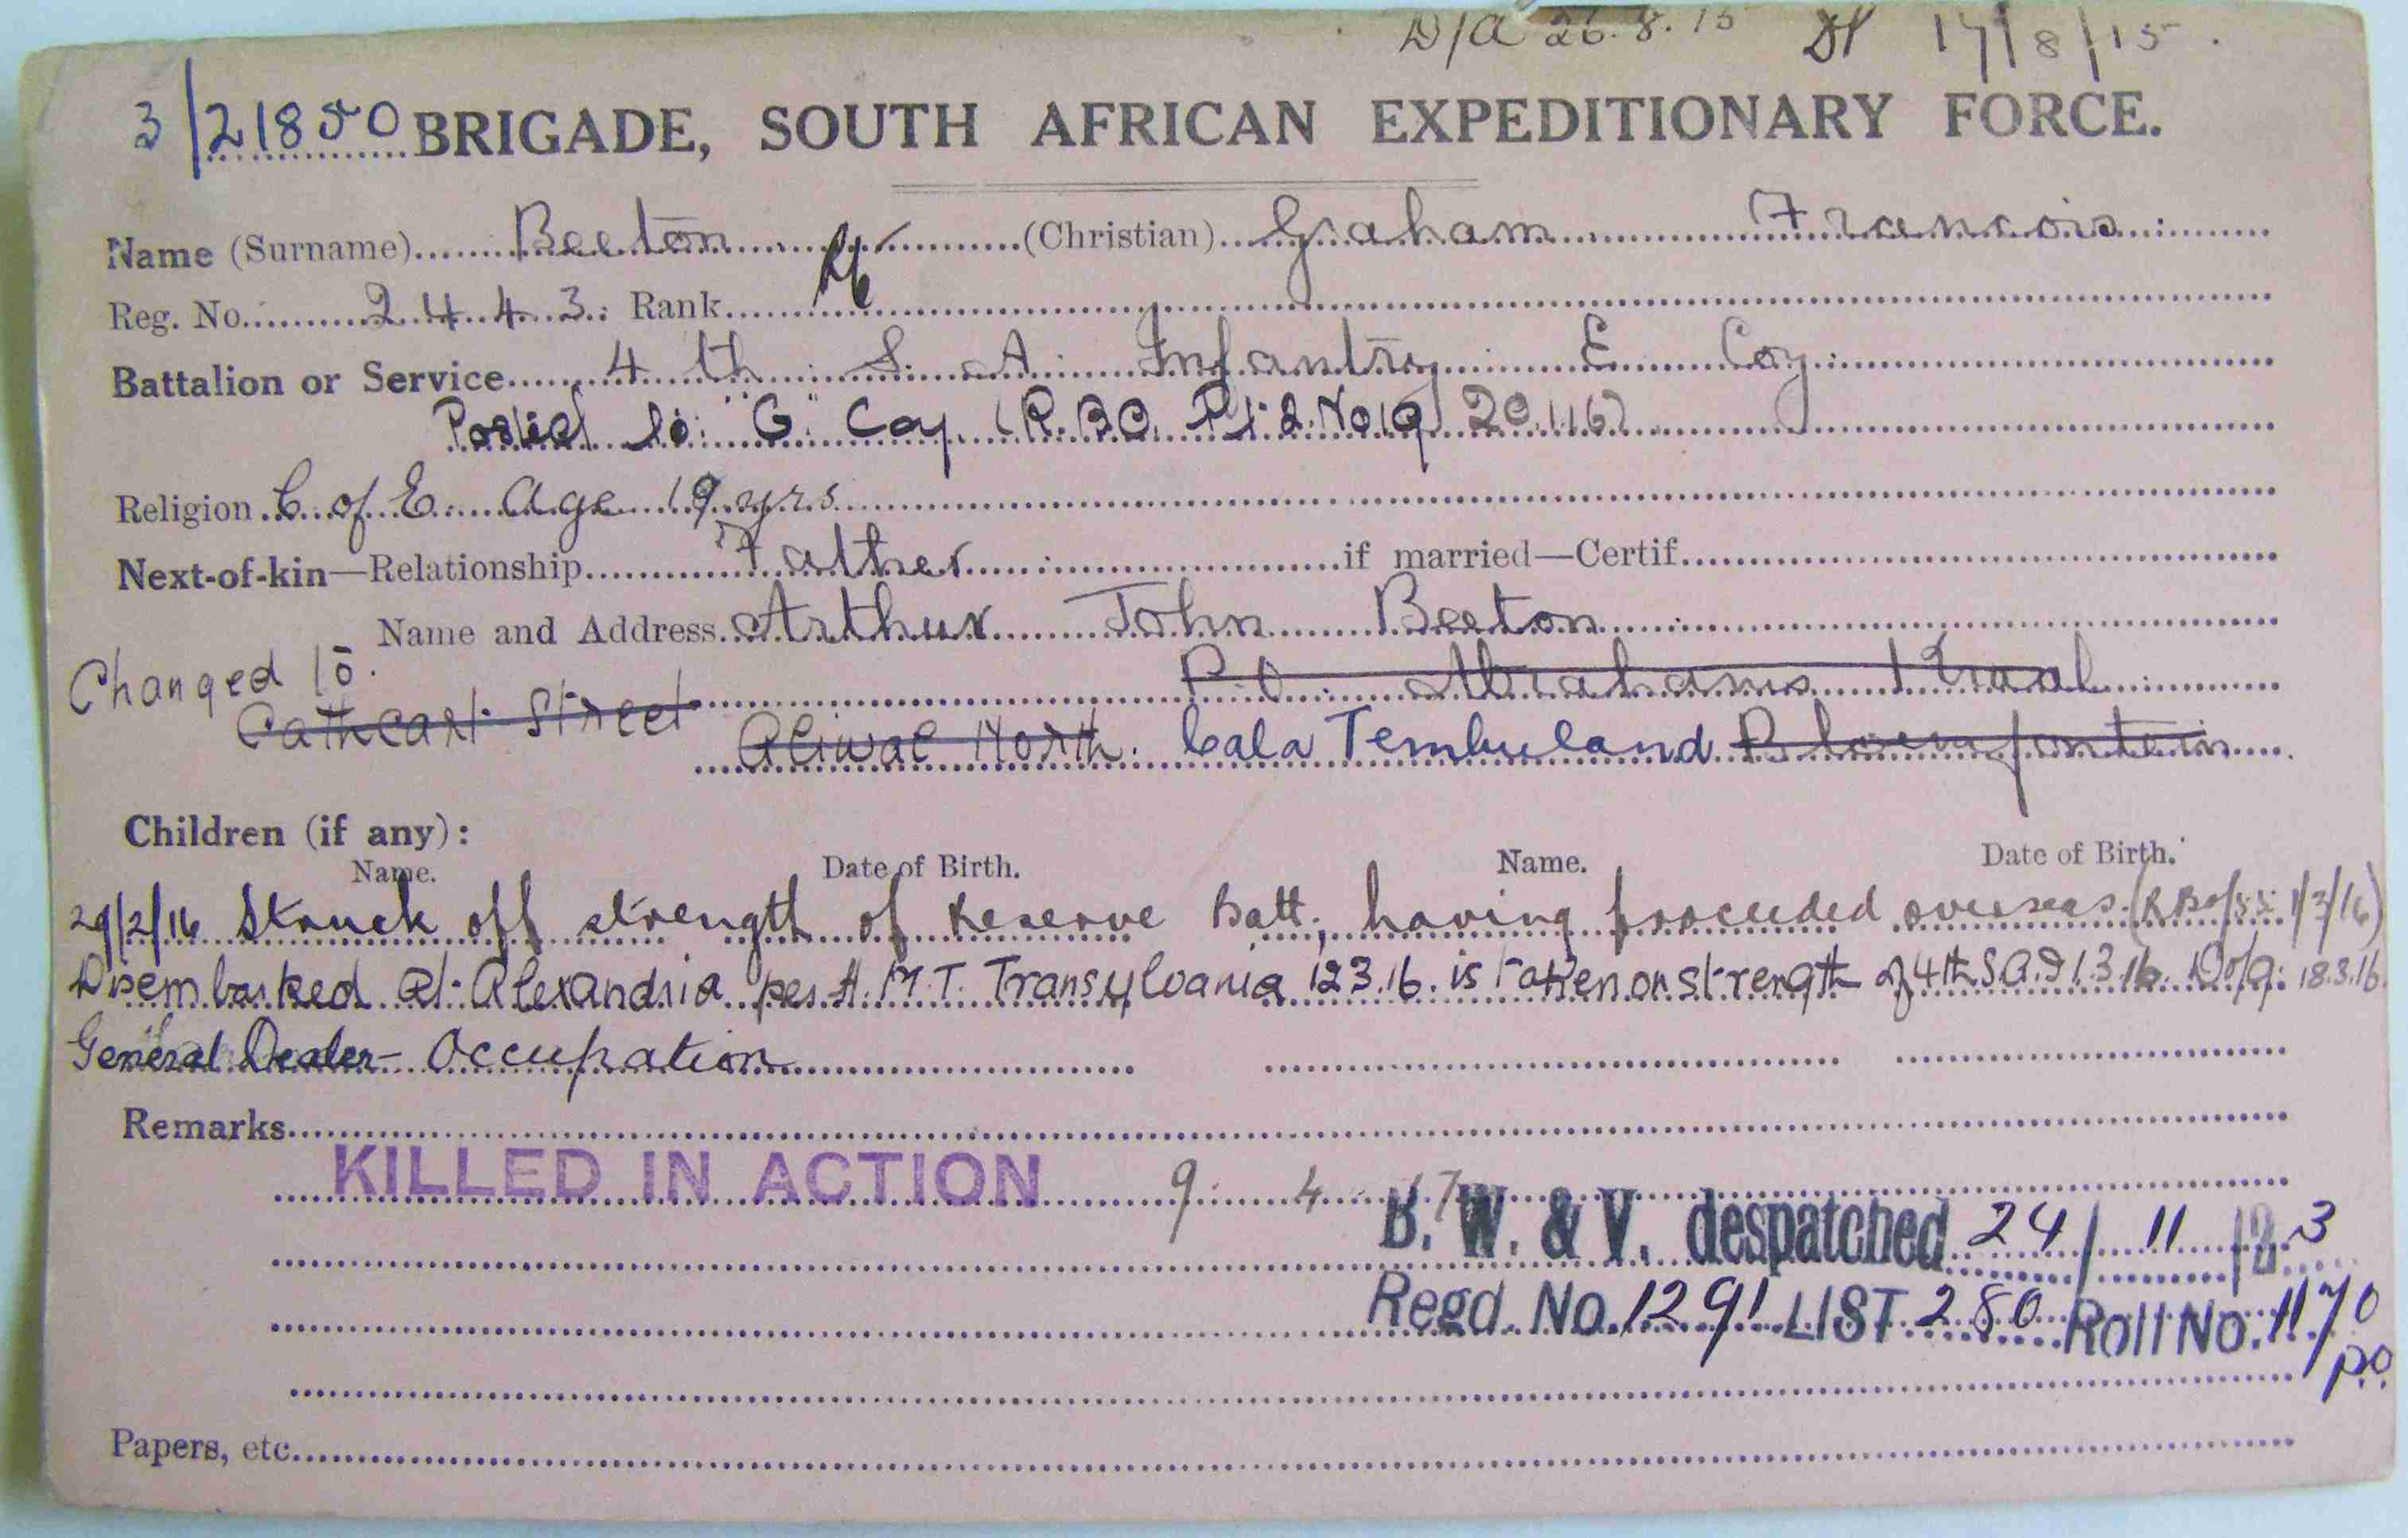 D/A 26.8.15 17/8/15.
3/21850 BRIGADE, SOUTH AFRICAN EXPEDITIONARY FORCE.
Name (Surname) Beeton (Christian) Graham Francois
Reg. No. 2443 Rank
Battalion or Service 4th S. A. Infantry E Coy
Posted to "G" Coy (R.B.O. Pt 2. No 19 20.1.16)
Religion C. of E. Age 19 yrs
Next-of-kin—Relationship Father if married—Certif
Name and Address Arthur John Beeton
Changed to P.O. Abrahams Kraal
Cathcart Street Aliwal North. Cala Tembuland Bloemfontein
Children (if any):
Name. Date of Birth. Name. Date of Birth.
29/2/16 Struck off strength of Reserve Batt; having proceeded overseas 1/3/16)
Disembarked at Alexandria per H.M.T. Transylvania 12 3.16. is taken on strength of 4th S.A.I 1.3.16. 18.3.16.
General Dealer - Occupation
Remarks
KILLED IN ACTION 9 4 17
B. W. & V. despatched 24/11/23
Regd. No. 1291 LIST 280 Roll No. 1170
p.o.
Papers, etc.